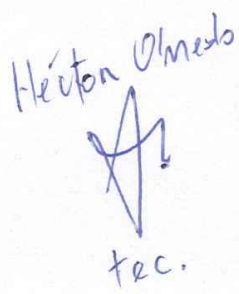 Héctor Olmedo
tec.